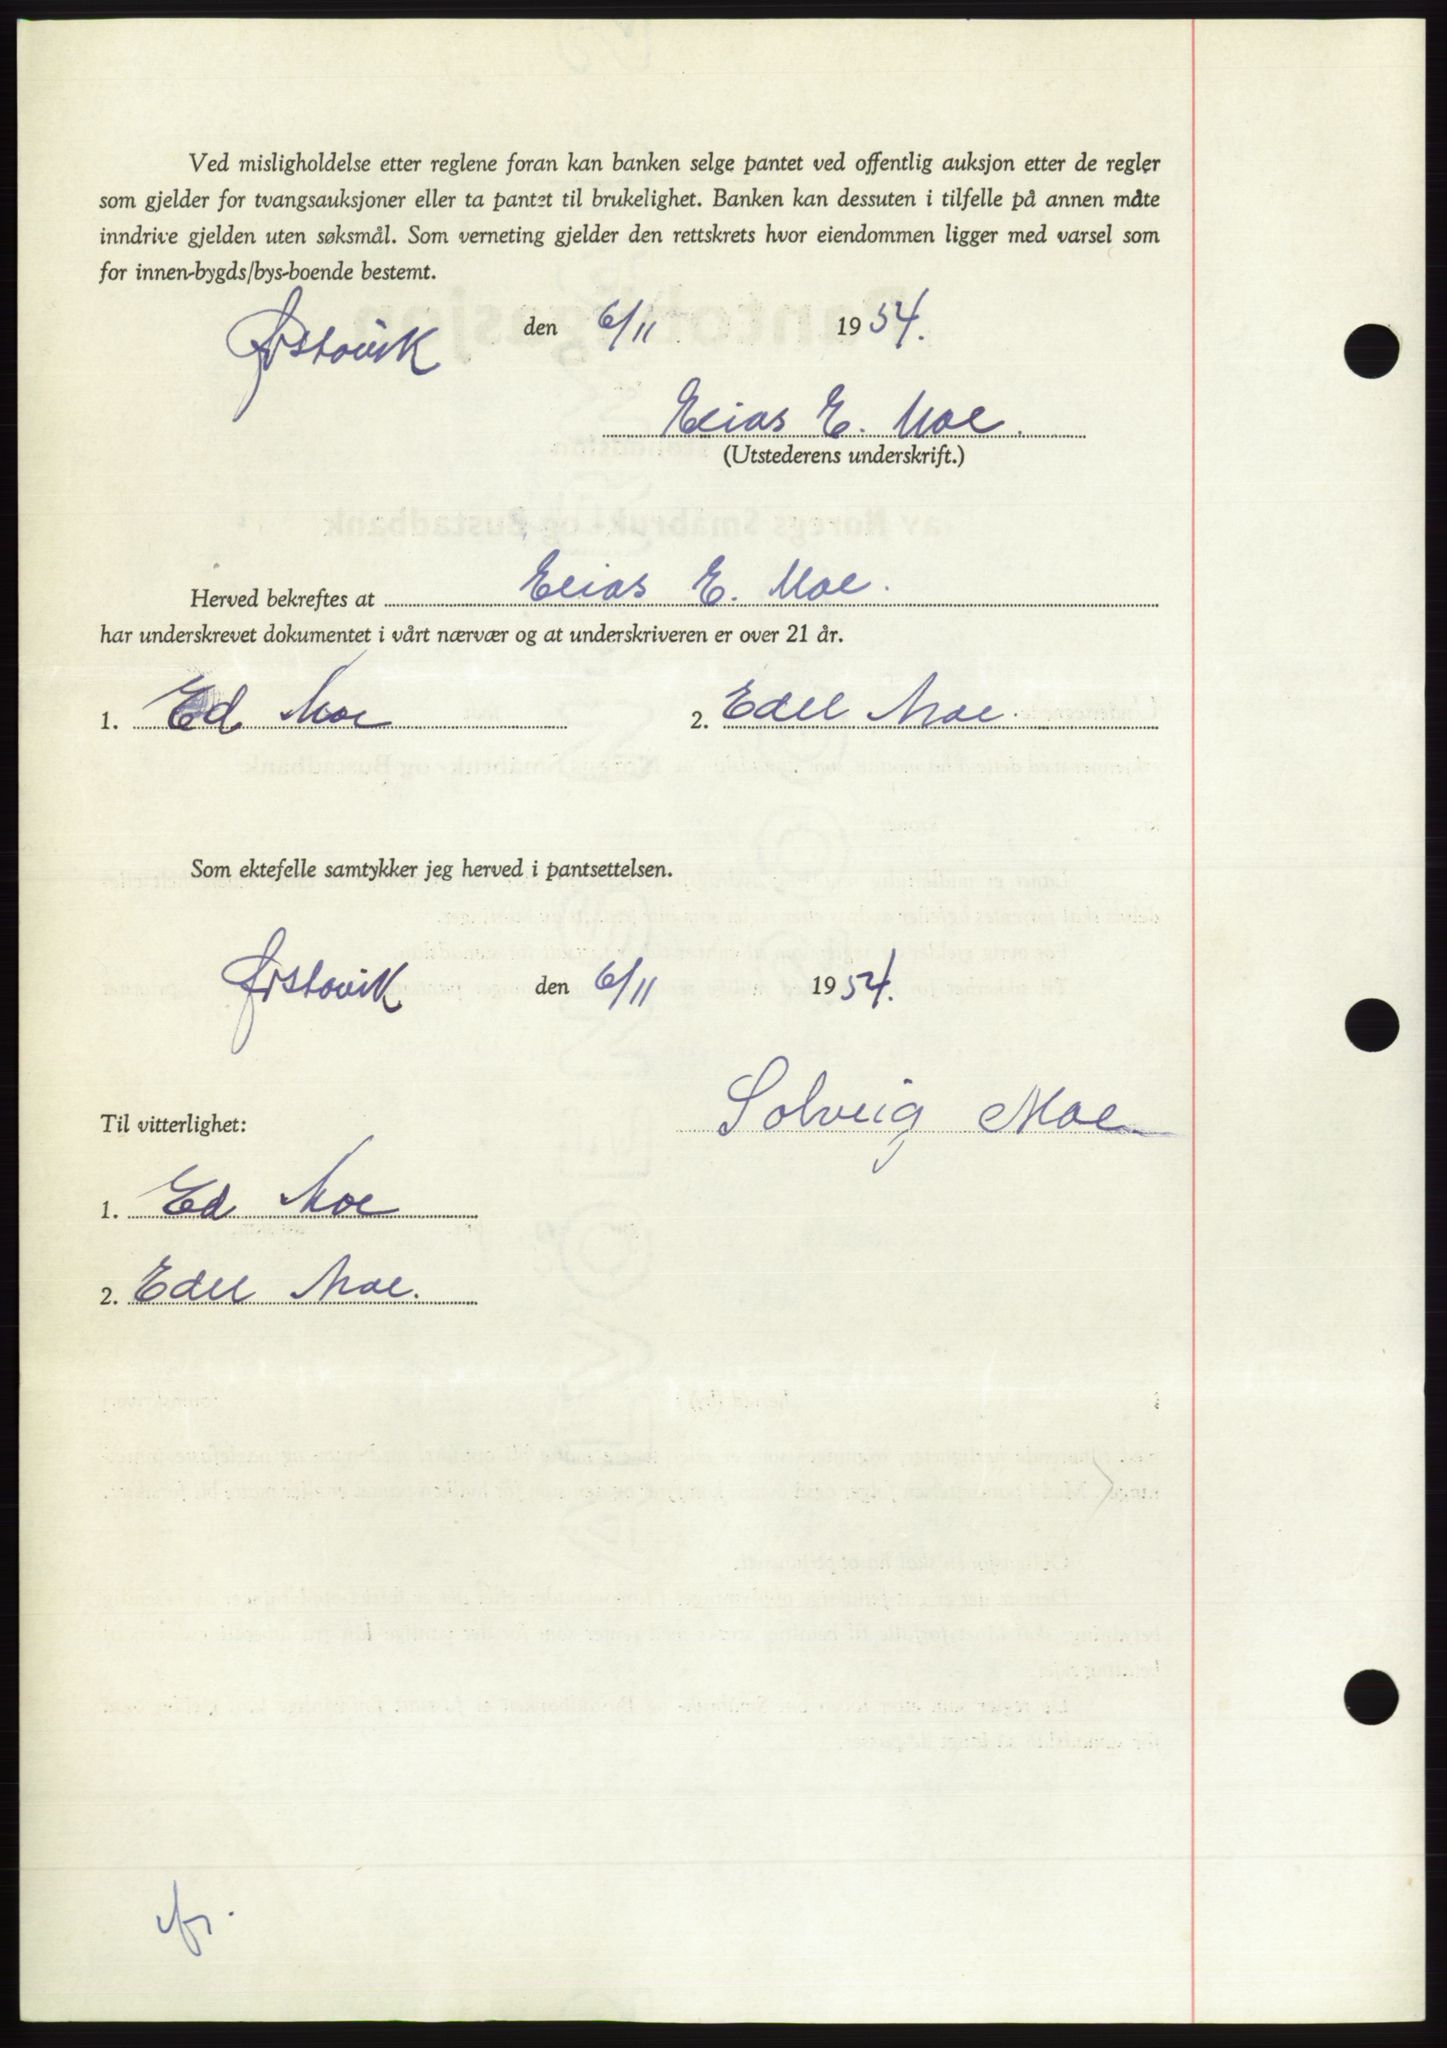 Ved misligholdelse etter reglene foran kan banken selge pantet ved offentlig auksjon etter de regler
som gjelder for tvangsauksjoner eller ta pantet til brukelighet. Banken kan dessuten i tilfelle på annen måte
inndrive gjelden uten søksmål. Som verneting gjelder den rettskrets hvor eiendommen ligger med varsel som
for innen-bygds/bys-boende bestemt.
Ørstavik den 6/11 1954.
Elias E. Moe.
(Utstederens underskrift.)
Herved bekreftes at Elias E. Moe.
har underskrevet dokumentet i vårt nærvær og at underskriveren er over 21 år.
1. Ed Moe 2. Edel Moe.
Som ektefelle samtykker jeg herved i pantsettelsen.
Ørstavik den 6/11 1954.
Solveig Moe
Til vitterlighet:
1. Ed Moe
2. Edel Moe.